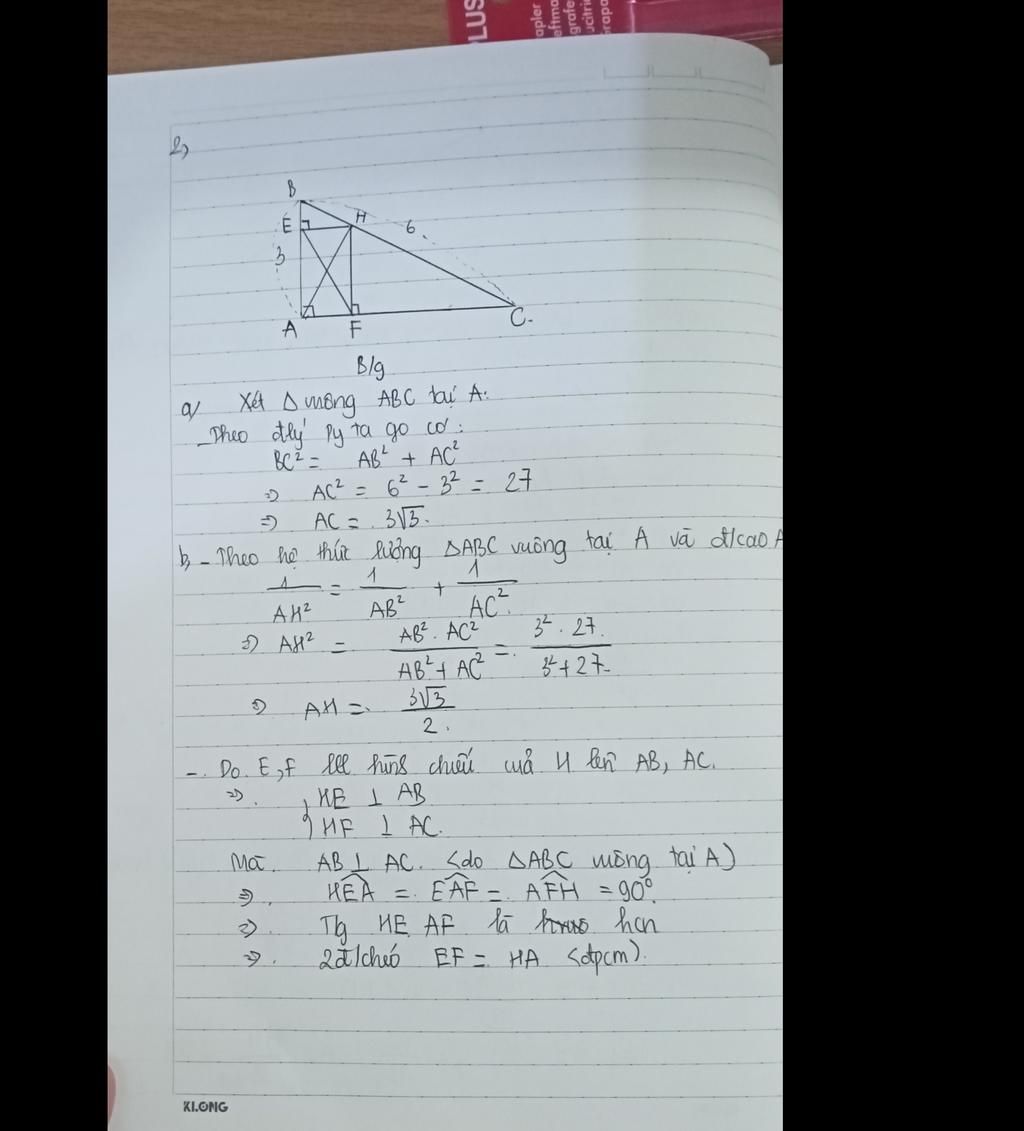 PLUS
apler
2,
B
E
H
6
3
A
F
C
B/g
a/ Xét Δ vuông ABC tại A:
- Theo đlý Py ta go có:
BC² = AB² + AC²
=> AC² = 6² - 3² = 27
=> AC = 3√3.
b, - Theo hệ thức lượng ΔABC vuông tại A và đ/cao A
1/AH² = 1/AB² + 1/AC²
=> AH² = AB². AC²/AB² + AC² = 3². 27/3² + 27
=> AH = 3√3/2.
- Do E, F hình chiếu của H lên AB, AC.
=> { HE ⊥ AB
HF ⊥ AC.
Mà AB ⊥ AC. (do ΔABC vuông tại A)
=> HEA = EAF = AFH = 90°.
=> Tg HE AF là hcn
=> 2đ/chéo EF = HA (đpcm).
KLONG